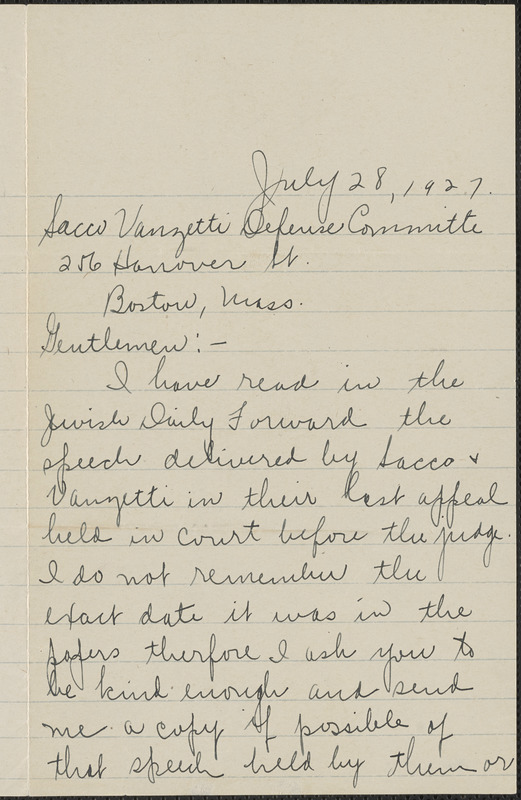 July 28, 1927.
Sacco Vanzetti Defense Committe
256 Hanover St.
Boston, Mass.
Gentlemen:—
I have read in the
Jewish Daily Forward the
speech delivered by Sacco &
Vanzetti in their last appeal
held in court before the judge.
I do not remember the
exact date it was in the
papers therfore I ask you to
be kind enough and send
me a copy if possible of
that speech held by them or